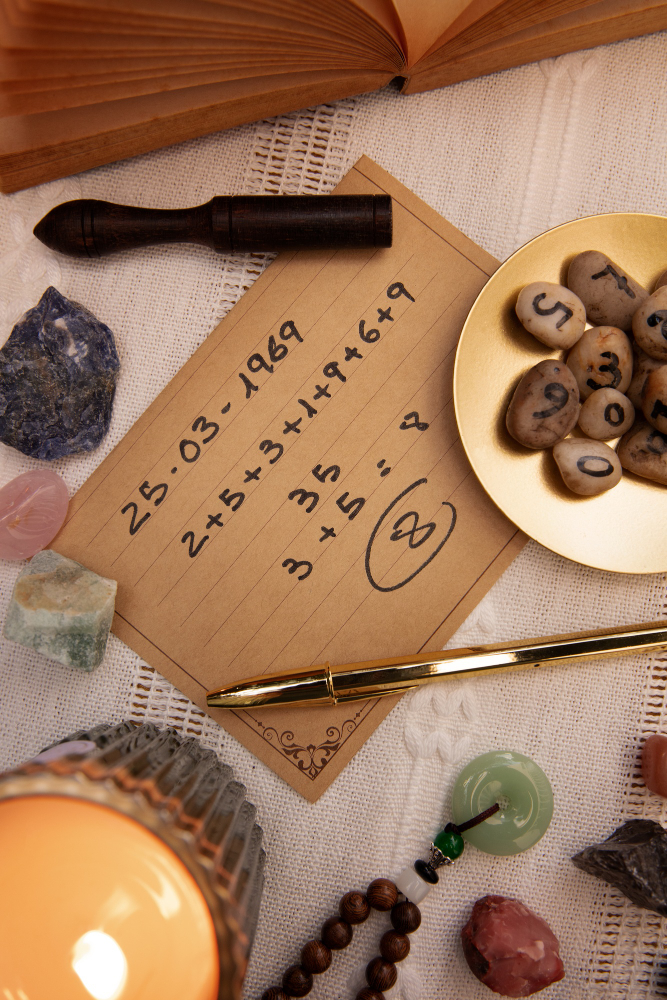 25.03-1969
2+5+3+1+9+6+9
35
3+5=8
8
7
5
3
0
0